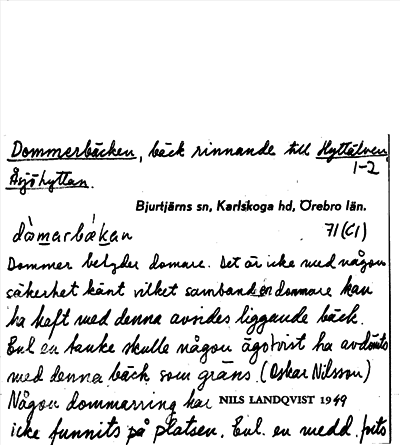 Dommerbäcken, bäck rinnande till Hyttälven,
1-2
Åsjöhyttan.
Bjurtjärns sn, Karlskoga hd, Örebro län.
dåmarbäkan 71 (C1)
Dommer betyder domare. Det är icke med någon
säkerhet känt vilket samband en dommare kan
ha haft med denna avsides liggande bäck.
Enl en tanke skulle någon ägotvist ha avdömts
med denna bäck som gräns (Oskar Nilsson)
Någon dommarring har NILS LANDQVIST 1949
icke funnits på platsen. Enl. en medd. fnts